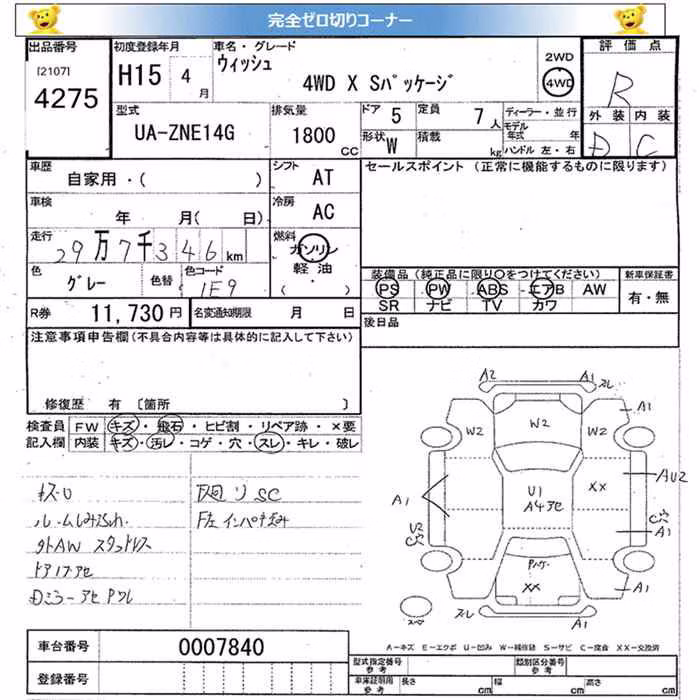 完全ゼロ切りコーナー
出品番号
[2107]
4275
初度登録年月
H15 4月
車名・グレード
ウィッシュ
4WD X Sパッケージ
2WD
4WD
評価点
R
外装 内装
D C
型式
UA-ZNE14G
排気量
1800 CC
ドア 5
定員 7人
形状 W
積載 kg
ディーラー・並行
モデル年式 年
ハンドル 左・右
車歴
自家用・( )
シフト AT
セールスポイント (正常に機能するものに限ります)
車検
年 月( 日)
冷房 AC
走行
29万7千346km
燃料
ガソリン
軽油
( ・ )
色
グレー
色替
色コード
1E9
装備品(純正品に限り○をつけてください)
新車保証書
PS PW ABS エアB AW
SR ナビ TV カワ
有・無
R券 11,730円
名変通知期限 月 日
後日品
注意事項申告欄(不具合内容等は具体的に記入して下さい)
修復歴 有 〔箇所 〕
検査員記入欄
FW キズ・飛石・ヒビ割・リペア跡・×要
内装 キズ・汚レ・コゲ・穴・スレ・キレ・破レ
キズU
下廻りSC
外AW スタッドレス
ドア内アセ
A2 A1 スレ
A1
W2 W2 W2
A1
U1
A4アセ
XX
AU2
U2
C穴
C穴
A1
Pハゲ
XX
A1
スレ A1
スペ
A-キズ E-エクボ U-凹み W-補修跡 S-サビ C-腐食 XX-交換済
車台番号 0007840
登録番号
型式指定番号 参考
類別区分番号 参考
車庫証明用 参考
長さ cm
幅 cm
高さ cm